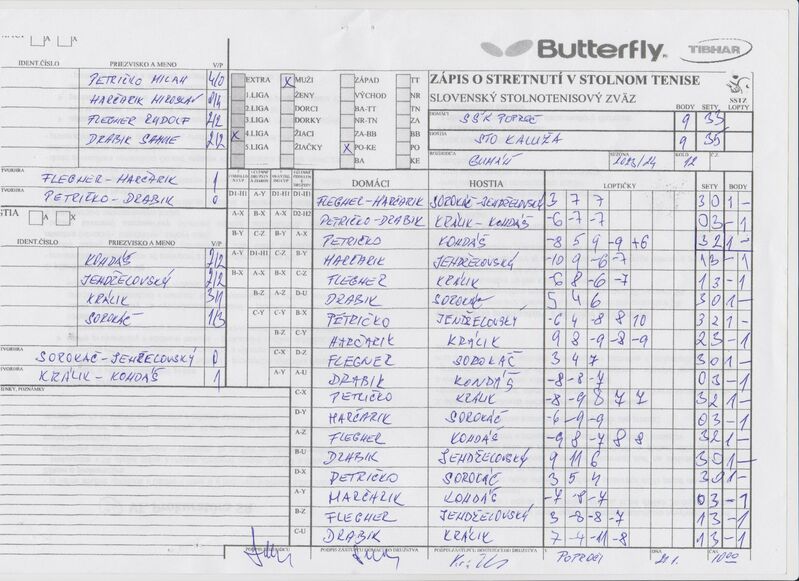 Butterfly
TIBHAR
ZÁPIS O STRETNUTÍ V STOLNOM TENISE
SLOVENSKÝ STOLNOTENISOVÝ ZVÄZ
SSTZ
BODY SETY LOPTY
DOMÁCI SŠK POPROČ 9 33
HOSTIA STO KALUŽA 9 35
ROZHODCA SEZÓNA 2023/24 KOLO 12 Č.Z.
EXTRA X MUŽI ZÁPAD TT
1.LIGA ŽENY VÝCHOD NR
2.LIGA DORCI BA-TT TN
3.LIGA DORKY NR-TN ZA
X 4.LIGA ŽIACI ZA-BB BB
5.LIGA ŽIAČKY X PO-KE PO
BA KE
A X
IDENT.ČÍSLO PRIEZVISKO A MENO V/P
PETRIČKO MILAN 4/0
HARČARIK MIROSLAV 0/4
FLEGNER RUDOLF 2/2
DRABIK 2/2
TVORHRA FLEGNER-HARČARIK 1
TVORHRA PETRIČKO-DRABIK 0
STIA A X
IDENT.ČÍSLO PRIEZVISKO A MENO V/P
KONDÁŠ 2/2
JENDŽELOVSKÝ 2/2
KRÁLIK 3/1
SOROKÁČ 1/3
TVORHRA SOROKÁČ-JENDŽELOVSKÝ 0
TVORHRA KRÁLIK-KONDÁŠ 1
POZNÁMKY
DOMÁCI HOSTIA LOPTIČKY SETY BODY
D1-H1 A-Y D1-H1 D1-H1 FLEGNER-HARČARIK SOROKÁČ-JENDŽELOVSKÝ 3 7 7 3 0 1 -
A-X B-X A-X D2-H2 PETRIČKO-DRABIK KRÁLIK-KONDÁŠ -6 -7 -7 0 3 - 1
B-Y C-Z B-Y A-X PETRIČKO KONDÁŠ -8 5 9 -9 +6 3 2 1 -
A-Y D1-H1 C-Z B-Y HARČARIK JENDŽELOVSKÝ -10 9 -6 -7 1 3 - 1
B-X A-X B-X C-Z FLEGNER KRÁLIK -6 8 -6 -7 1 3 - 1
B-Z A-Z D-U DRABIK SOROKÁČ 5 4 6 3 0 1 -
C-Y C-Y B-X PETRIČKO JENDŽELOVSKÝ -6 4 -8 8 10 3 2 1 -
B-Z C-Y HARČARIK KRÁLIK 9 8 -9 -8 -9 2 3 - 1
C-X D-Z FLEGNER SOROKÁČ 3 4 7 3 0 1 -
A-Y A-U DRABIK KONDÁŠ -8 -8 -7 0 3 - 1
C-X PETRIČKO KRÁLIK -8 -9 8 7 7 3 2 1 -
D-Y HARČARIK SOROKÁČ -6 -9 -9 0 3 - 1
A-Z FLEGNER KONDÁŠ -9 8 -7 8 8 3 2 1 -
B-U DRABIK JENDŽELOVSKÝ 9 11 6 3 0 1 -
D-X PETRIČKO SOROKÁČ 3 5 4 3 0 1 -
A-Y HARČARIK KONDÁŠ -7 -8 -7 0 3 - 1
B-Z FLEGNER JENDŽELOVSKÝ 3 -8 -8 -7 1 3 - 1
C-U DRABIK KRÁLIK 7 -4 -11 -8 1 3 - 1
PODPIS ZÁSTUPCU DOMÁCEHO DRUŽSTVA PODPIS ZÁSTUPCU HOSŤUJÚCEHO DRUŽSTVA V POPROČI DŇA 21.1. ČAS 10.00